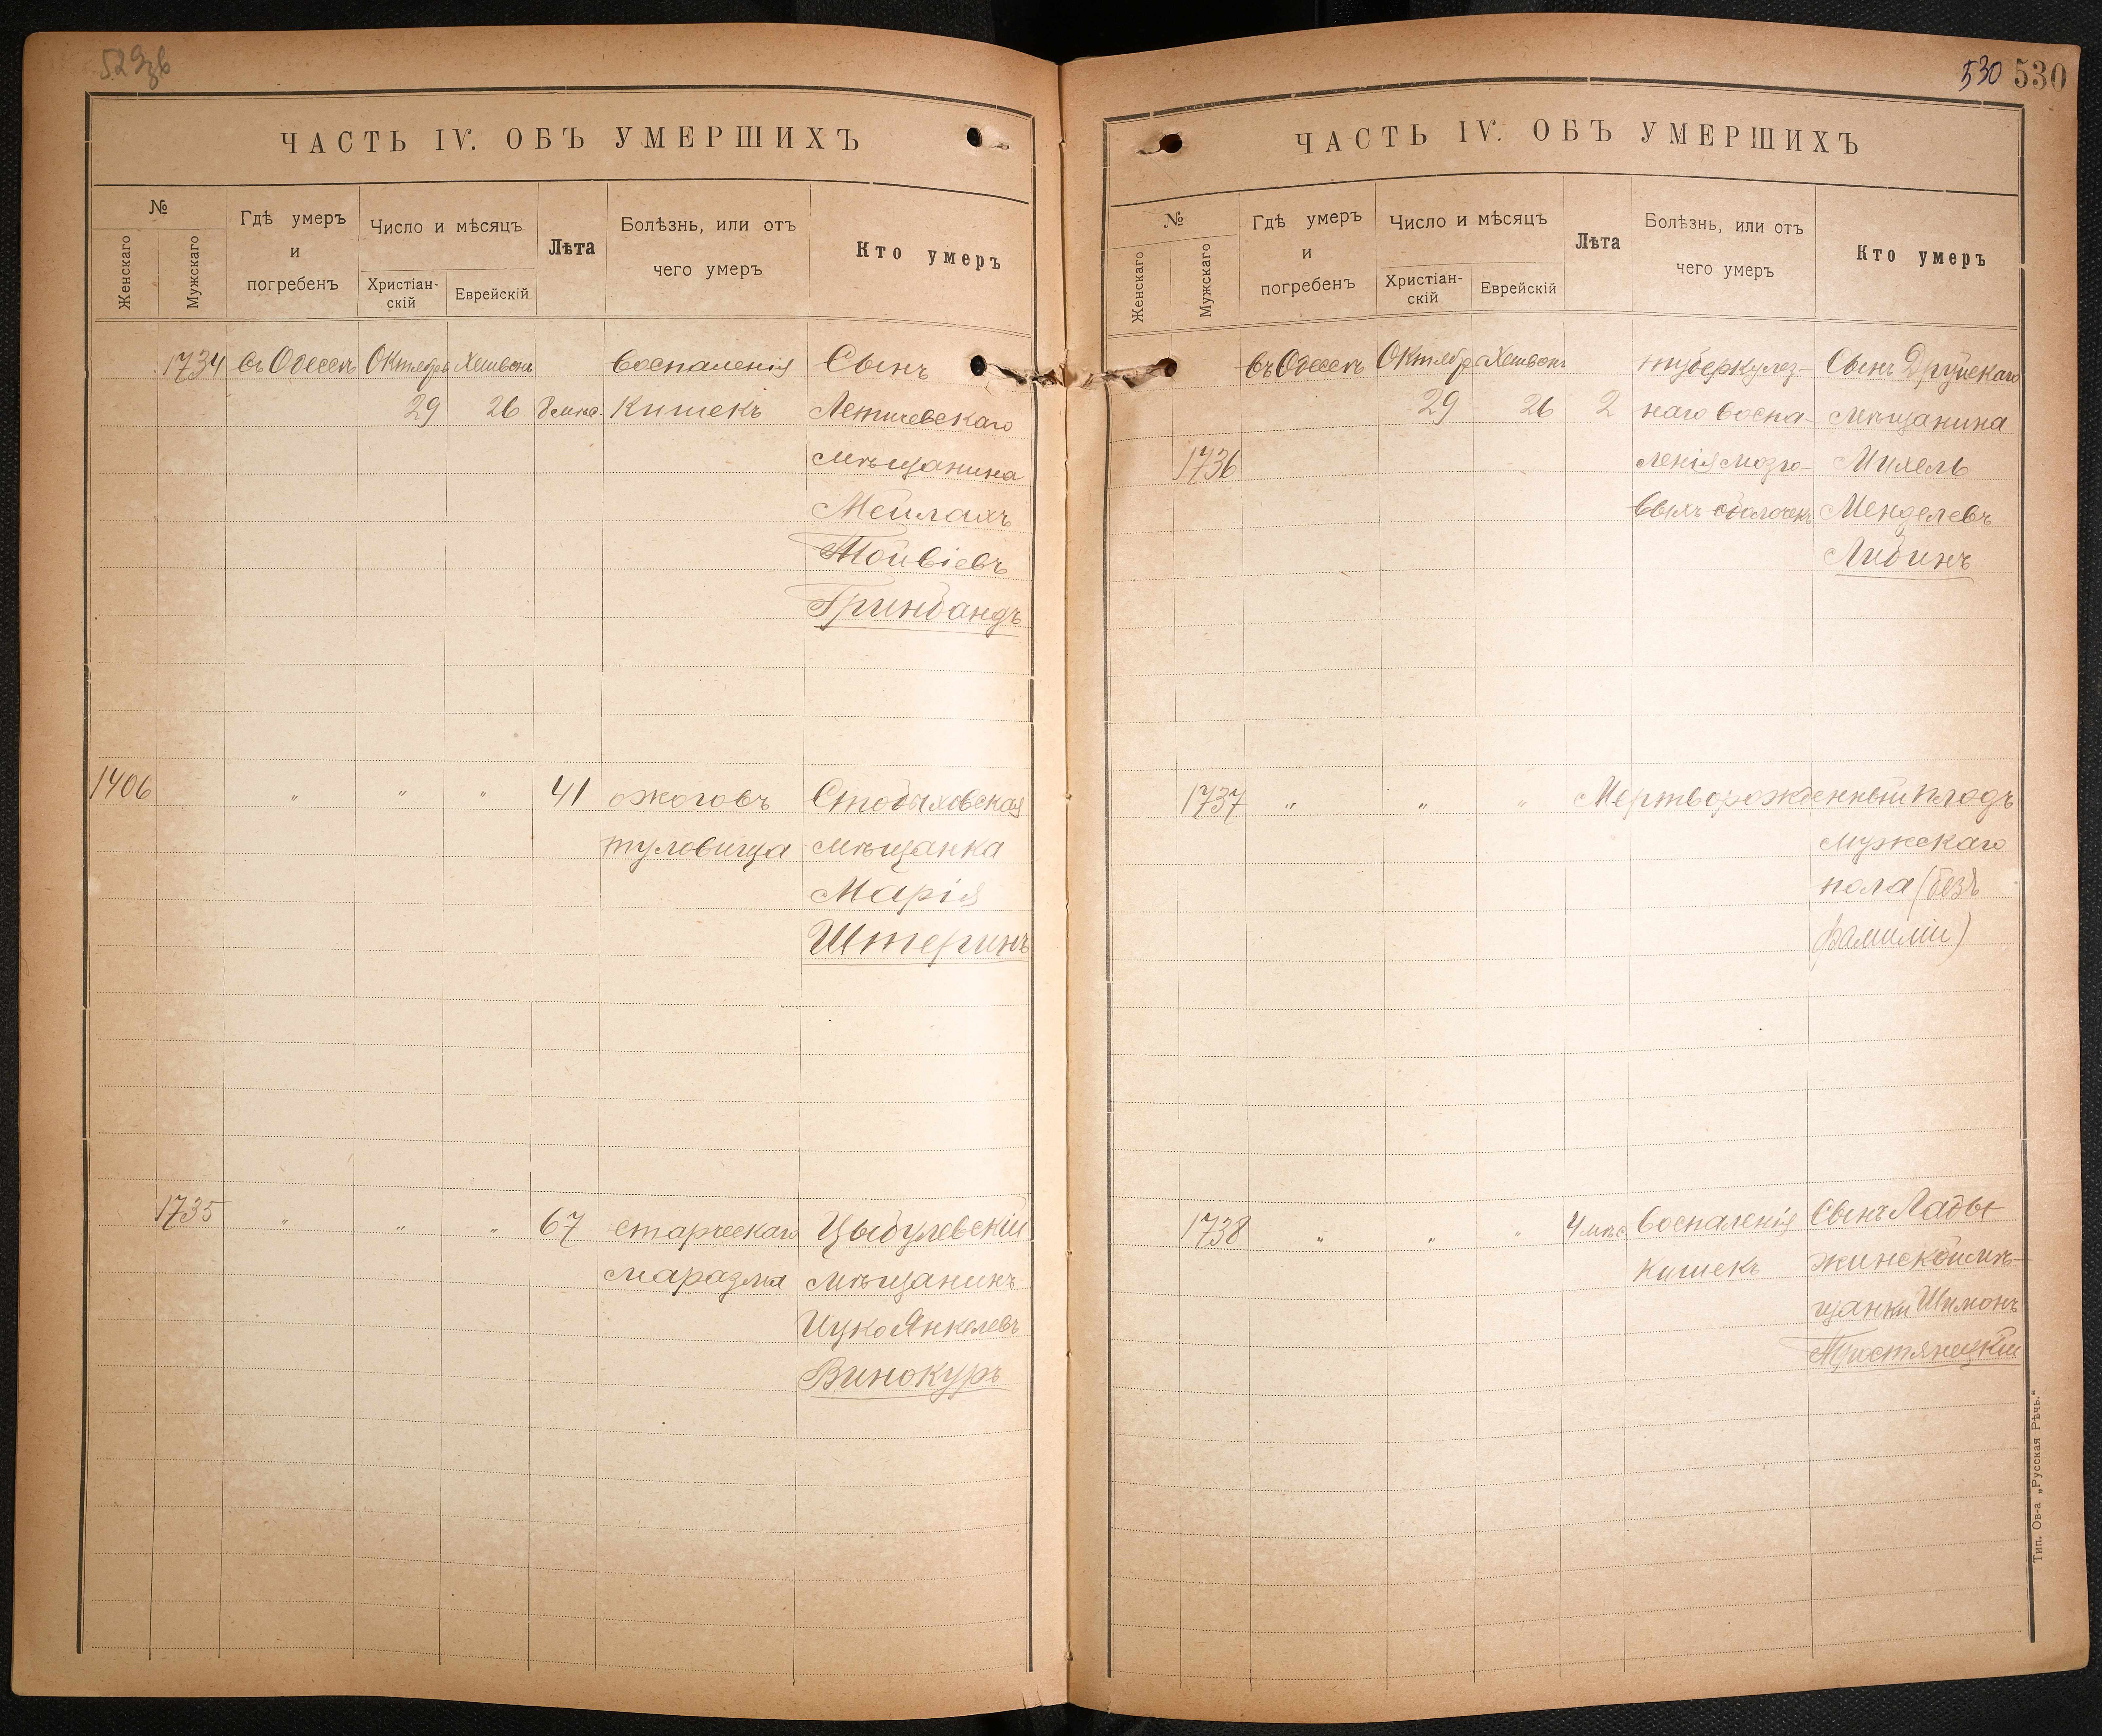 529зв
ЧАСТЬ IV. ОБЪ УМЕРШИХЪ
№
Женскаго
Мужскаго
Гдѣ умеръ
и
погребенъ
Число и мѣсяцъ
Христіан-
скій
Еврейскій
Лѣта
Болѣзнь, или отъ
чего умеръ
Кто умеръ
1734 въ Одессѣ Октября Хешвонъ воспаленія Сынъ
29 26 8 мѣс. кишекъ Летичевскаго
мѣщанина
Мейлахъ
Тойвіевъ
Гринбандъ
1406 " " " 41 ожоговъ Стобыховская
туловища мѣщанка
Марія
Штеринъ
1735 " " " 67 старческаго Цыбулевскій
маразма мѣщанинъ
Ицко Янкелевъ
Винокуръ
530 530
ЧАСТЬ IV. ОБЪ УМЕРШИХЪ
№
Женскаго
Мужскаго
Гдѣ умеръ
и
погребенъ
Число и мѣсяцъ
Христіан-
скій
Еврейскій
Лѣта
Болѣзнь, или отъ
чего умеръ
Кто умеръ
въ Одессѣ Октября Хешвонъ туберкулез- Сынъ Друйскаго
29 26 2 наго воспа- мѣщанина
1736 ленія мозго- Михель
выхъ оболочекъ Менделевъ
Либинъ
1737 " " " Мертворожденный плодъ
мужскаго
пола (безъ
фамиліи)
1738 " " " 4 мѣс. воспаленія Сынъ Лады-
кишекъ жинской мѣ-
щанки Шимонъ
Тростянецкій
Тип. Ов-а „Русская Рѣчь.“